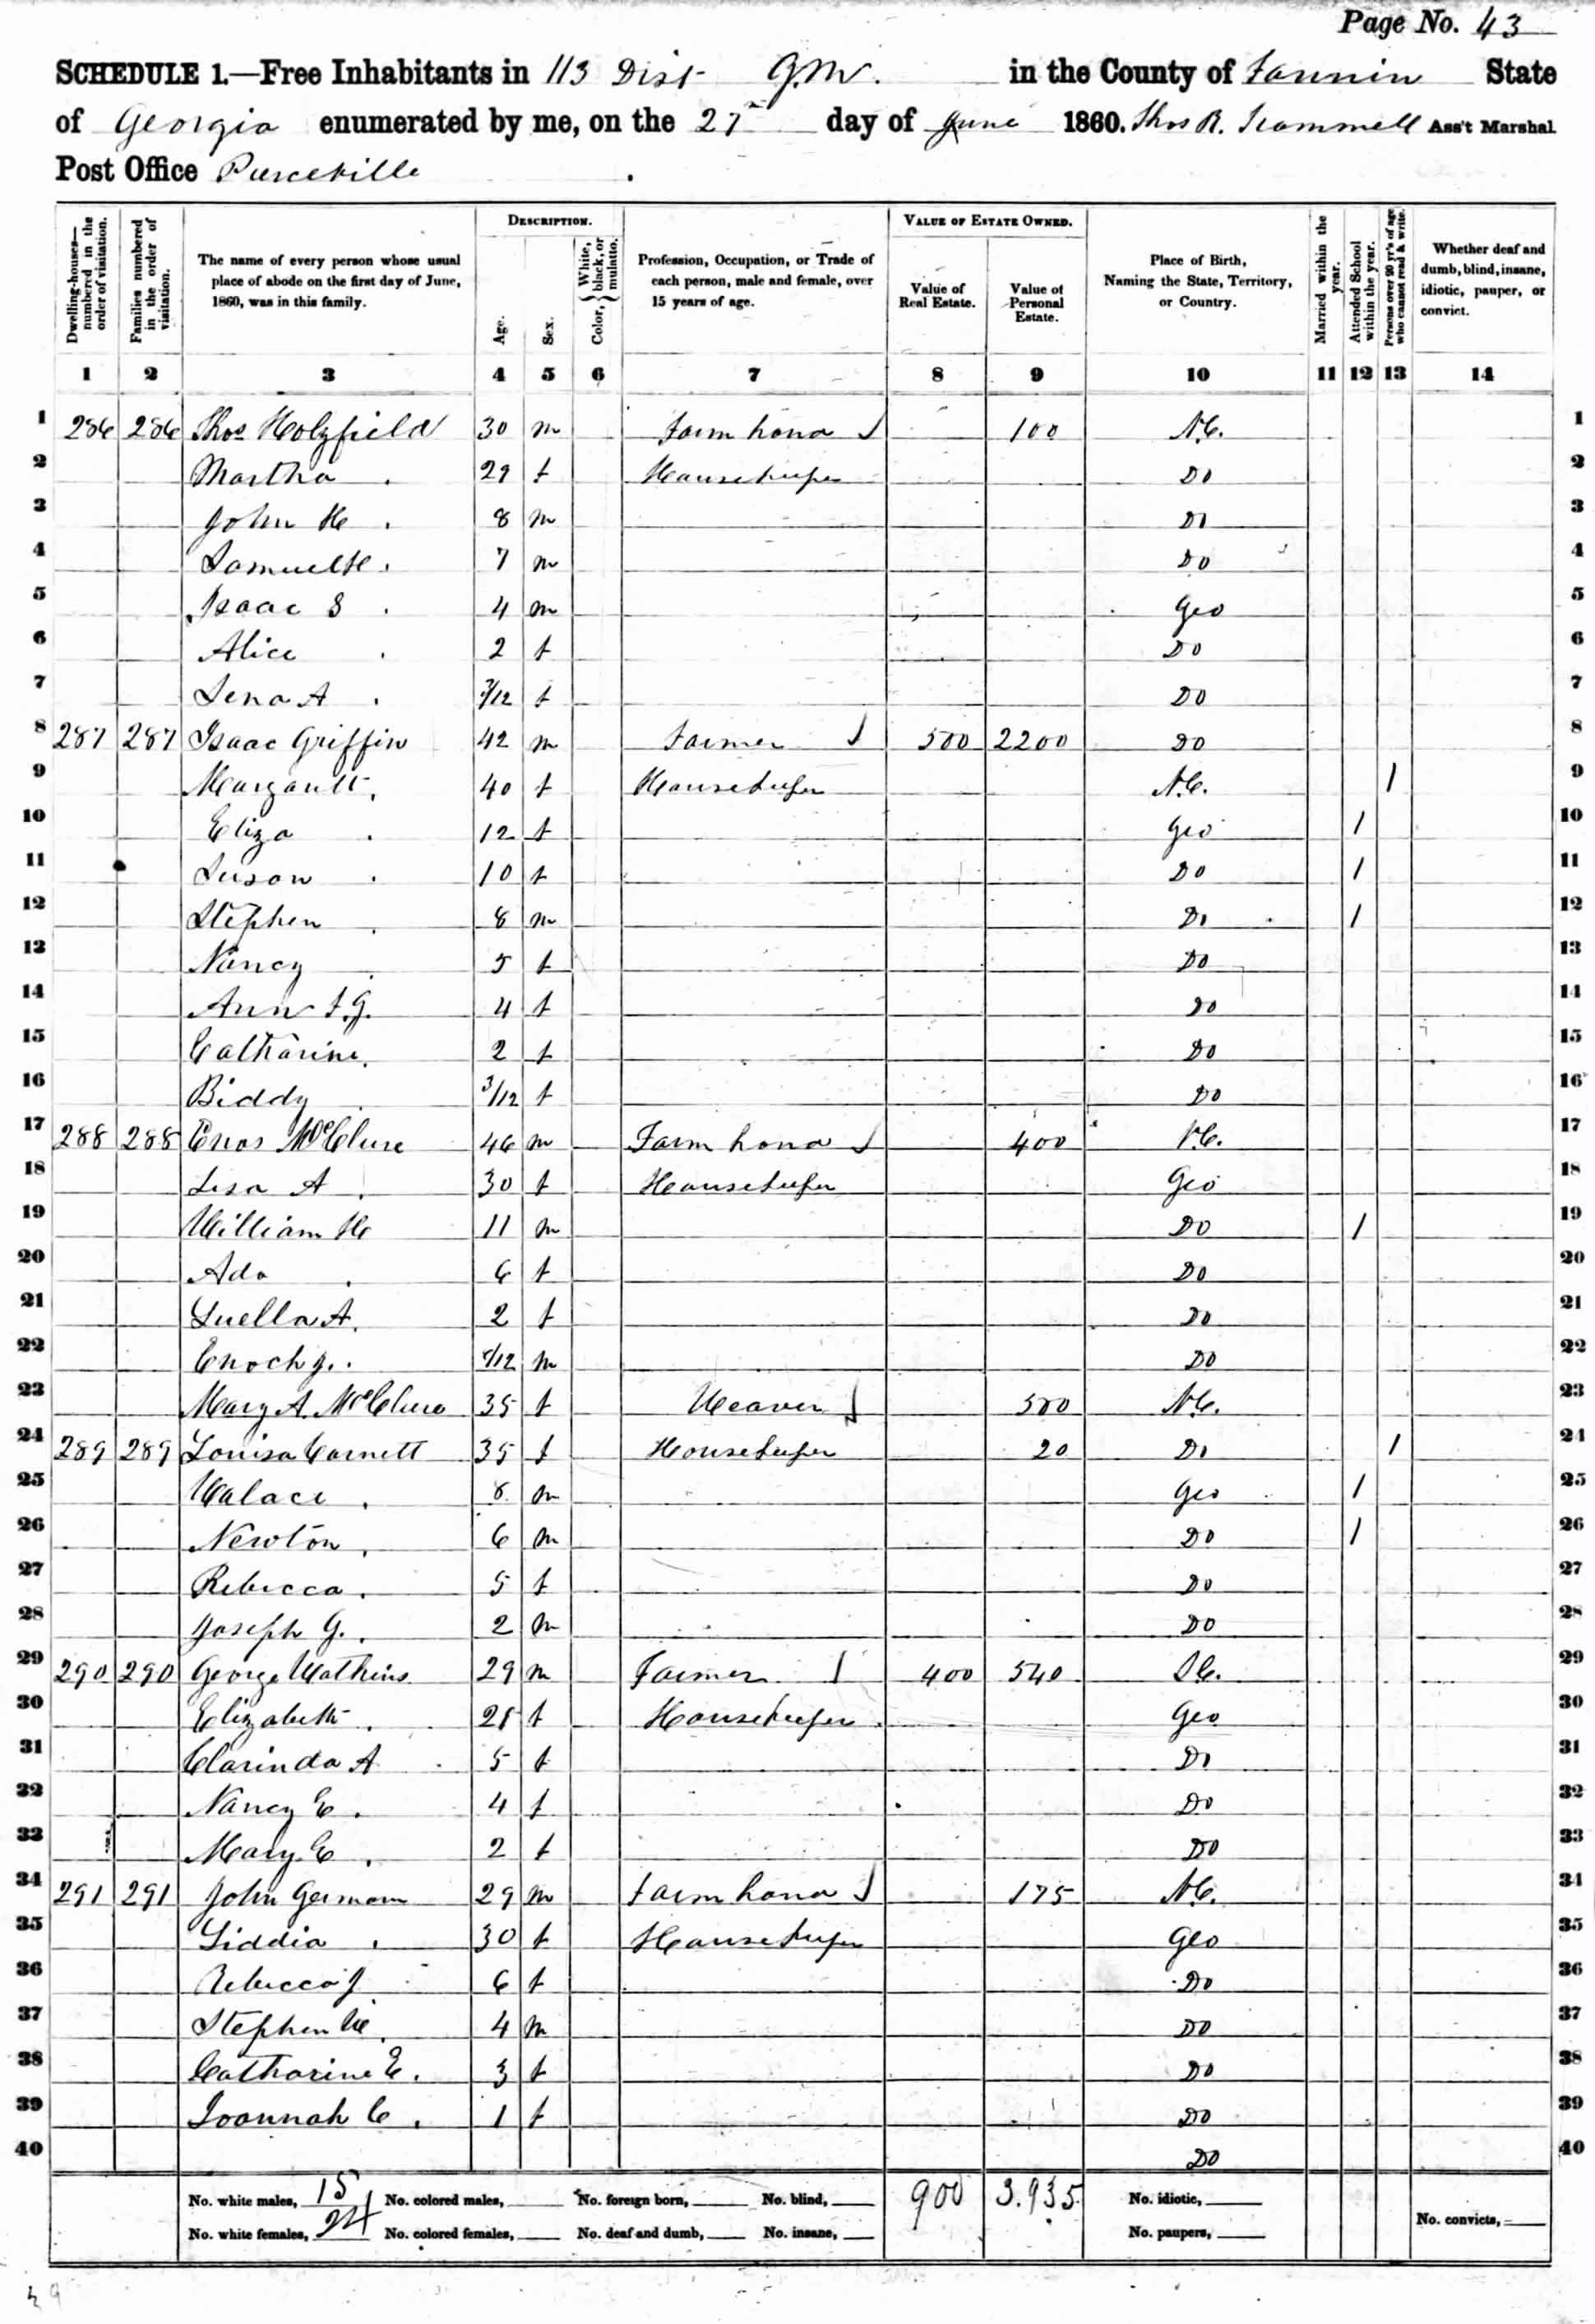 Page No. 43
SCHEDULE 1.—Free Inhabitants in 113 Dist G.M. in the County of Fannin State
of Georgia enumerated by me, on the 27 day of June 1860. Thos R. Trammell Ass't Marshal
Post Office
Dwelling-houses—numbered in the order of visitation.
Families numbered in the order of visitation.
The name of every person whose usual place of abode on the first day of June, 1860, was in this family.
DESCRIPTION.
Age.
Sex.
Color, { White, black, or mulatto.
Profession, Occupation, or Trade of each person, male and female, over 15 years of age.
VALUE OF ESTATE OWNED.
Value of Real Estate.
Value of Personal Estate.
Place of Birth, Naming the State, Territory, or Country.
Married within the year.
Attended School within the year.
Persons over 20 yr's of age who cannot read & write.
Whether deaf and dumb, blind, insane, idiotic, pauper, or convict.
1 2 3 4 5 6 7 8 9 10 11 12 13 14
1 286 286 Thos Holyfield 30 m Farm hand 100 N.C. 1
2 Martha 29 f Housekeeper Do 2
3 John H 8 m Do 3
4 Samuel H. 7 m Do 4
5 Isaac S 4 m Geo 5
6 Alice 2 f Do 6
7 Lena A /12 f Do 7
8 287 287 Isaac Griffin 42 m Farmer 500 2200 Do 8
9 Margarett 40 f Housekeeper N.C. / 9
10 Eliza 12 f Geo / 10
11 Suson 10 f Do / 11
12 Stephen 8 m Do / 12
13 Nancy 5 f Do 13
14 Ann F.G. 4 f Do 14
15 Catharine 2 f Do 15
16 Biddy 3/12 f Do 16
17 288 288 Enos McClure 46 m Farm hand 400 17
18 Lisa A 30 f Housekeeper Geo 18
19 William H 11 m Do / 19
20 Ada 6 f Do 20
21 Luella A. 2 f Do 21
22 Enoch J. /12 m Do 22
23 Mary A. McClure 35 f Weaver 500 N.C. 23
24 289 289 Louisa Cornett 35 f Housekeeper 20 Do / 24
25 Walace 8 m Geo / 25
26 Newton 6 m Do / 26
27 Rebecca 5 f Do 27
28 Joseph G. 2 m Do 28
29 290 290 George Watkins 29 m Farmer 400 540 S.C. 29
30 Elizabeth f Housekeeper Geo 30
31 Clarinda A 5 f Do 31
32 Nancy E. 4 f Do 32
33 Mary E 2 f Do 33
34 291 291 John German 29 m Farm hand 175 N.C. 34
35 Liddia 30 f Housekeeper Geo 35
36 Rebecca J 6 f Do 36
37 Stephen W 4 m Do 37
38 Catharine E. 3 f Do 38
39 Joannah C. 1 f Do 39
40 Do 40
No. white males, 15 No. colored males, No. foreign born, No. blind, 900 3.935 No. idiotic,
No. white females, 24 No. colored females, No. deaf and dumb, No. insane, No. paupers, No. convicts,